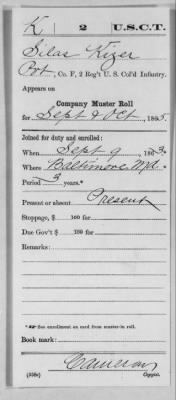 K 2 U.S.C.T.
Silas Kizer
Pvt., Co. F, 2 Reg't U. S. Col'd Infantry.
Appears on
Company Muster Roll
for Sept & Oct, 1865.
Joined for duty and enrolled:
When Sept 9, 1863.
Where Baltimore Md.
Period 3 years.*
Present or absent Present
Stoppage, $ 100 for
Due Gov't $ 100 for
Remarks:
* See enrollment on card from muster-in roll.
Book mark:
Cameron
(358c) Copyist.